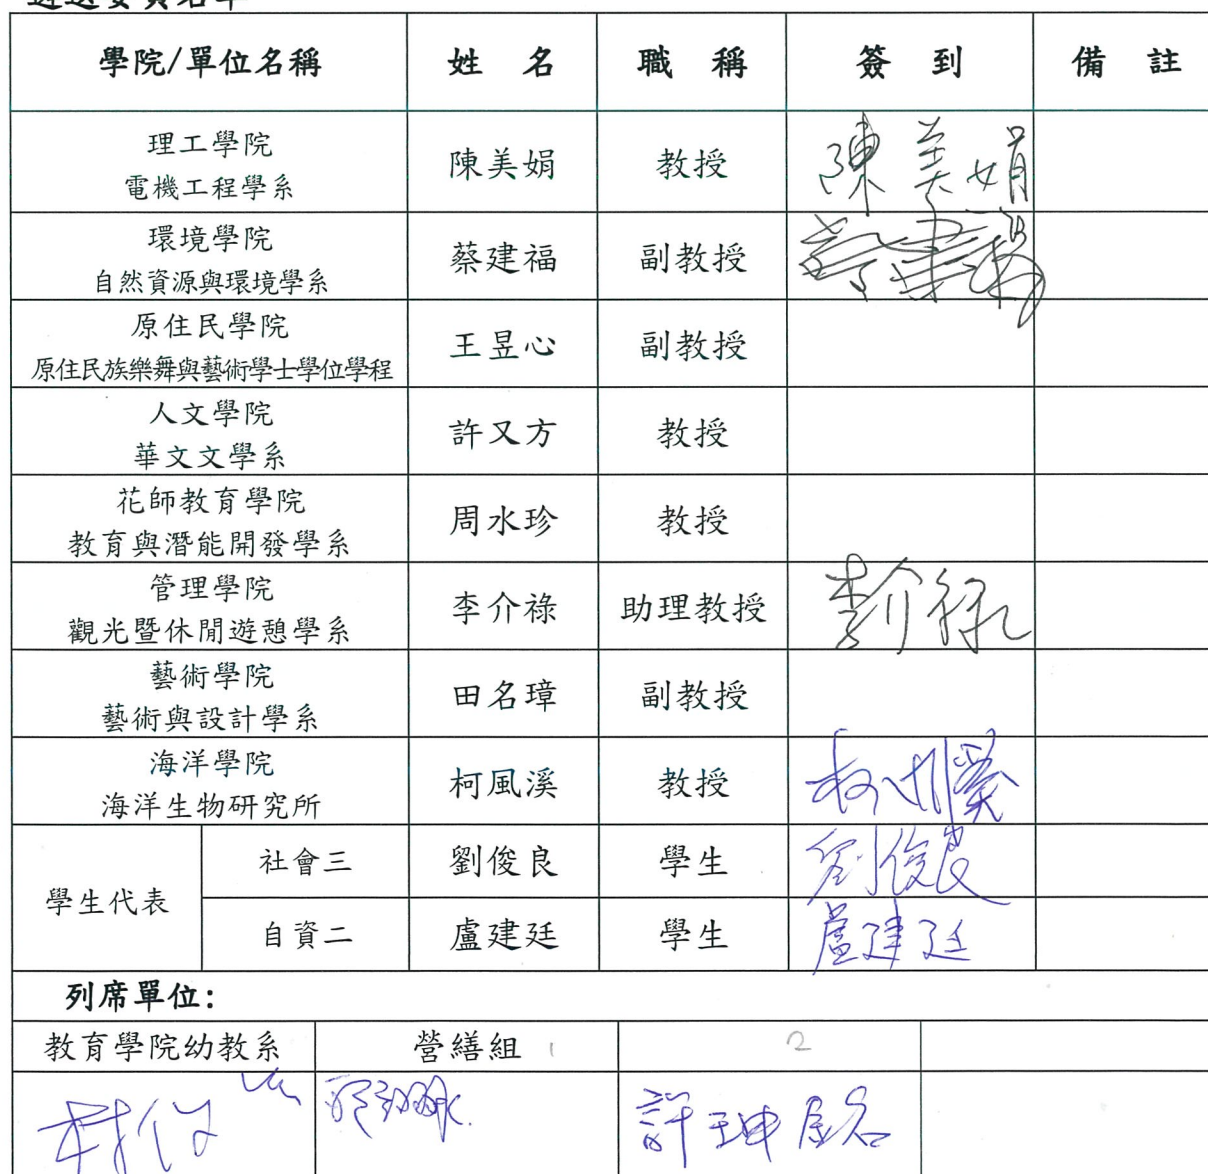 遴選委員名單
學院/單位名稱 姓 名 職 稱 簽 到 備 註
理工學院
電機工程學系 陳美娟 教授 陳美娟
環境學院
自然資源與環境學系 蔡建福 副教授
原住民學院
原住民族樂舞與藝術學士學位學程 王昱心 副教授
人文學院
華文文學系 許又方 教授
花師教育學院
教育與潛能開發學系 周水珍 教授
管理學院
觀光暨休閒遊憩學系 李介祿 助理教授 李介祿
藝術學院
藝術與設計學系 田名璋 副教授
海洋學院
海洋生物研究所 柯風溪 教授 柯風溪
學生代表 社會三 劉俊良 學生 劉俊良
自資二 盧建廷 學生 盧建廷
列席單位:
教育學院幼教系 營繕組 1 2